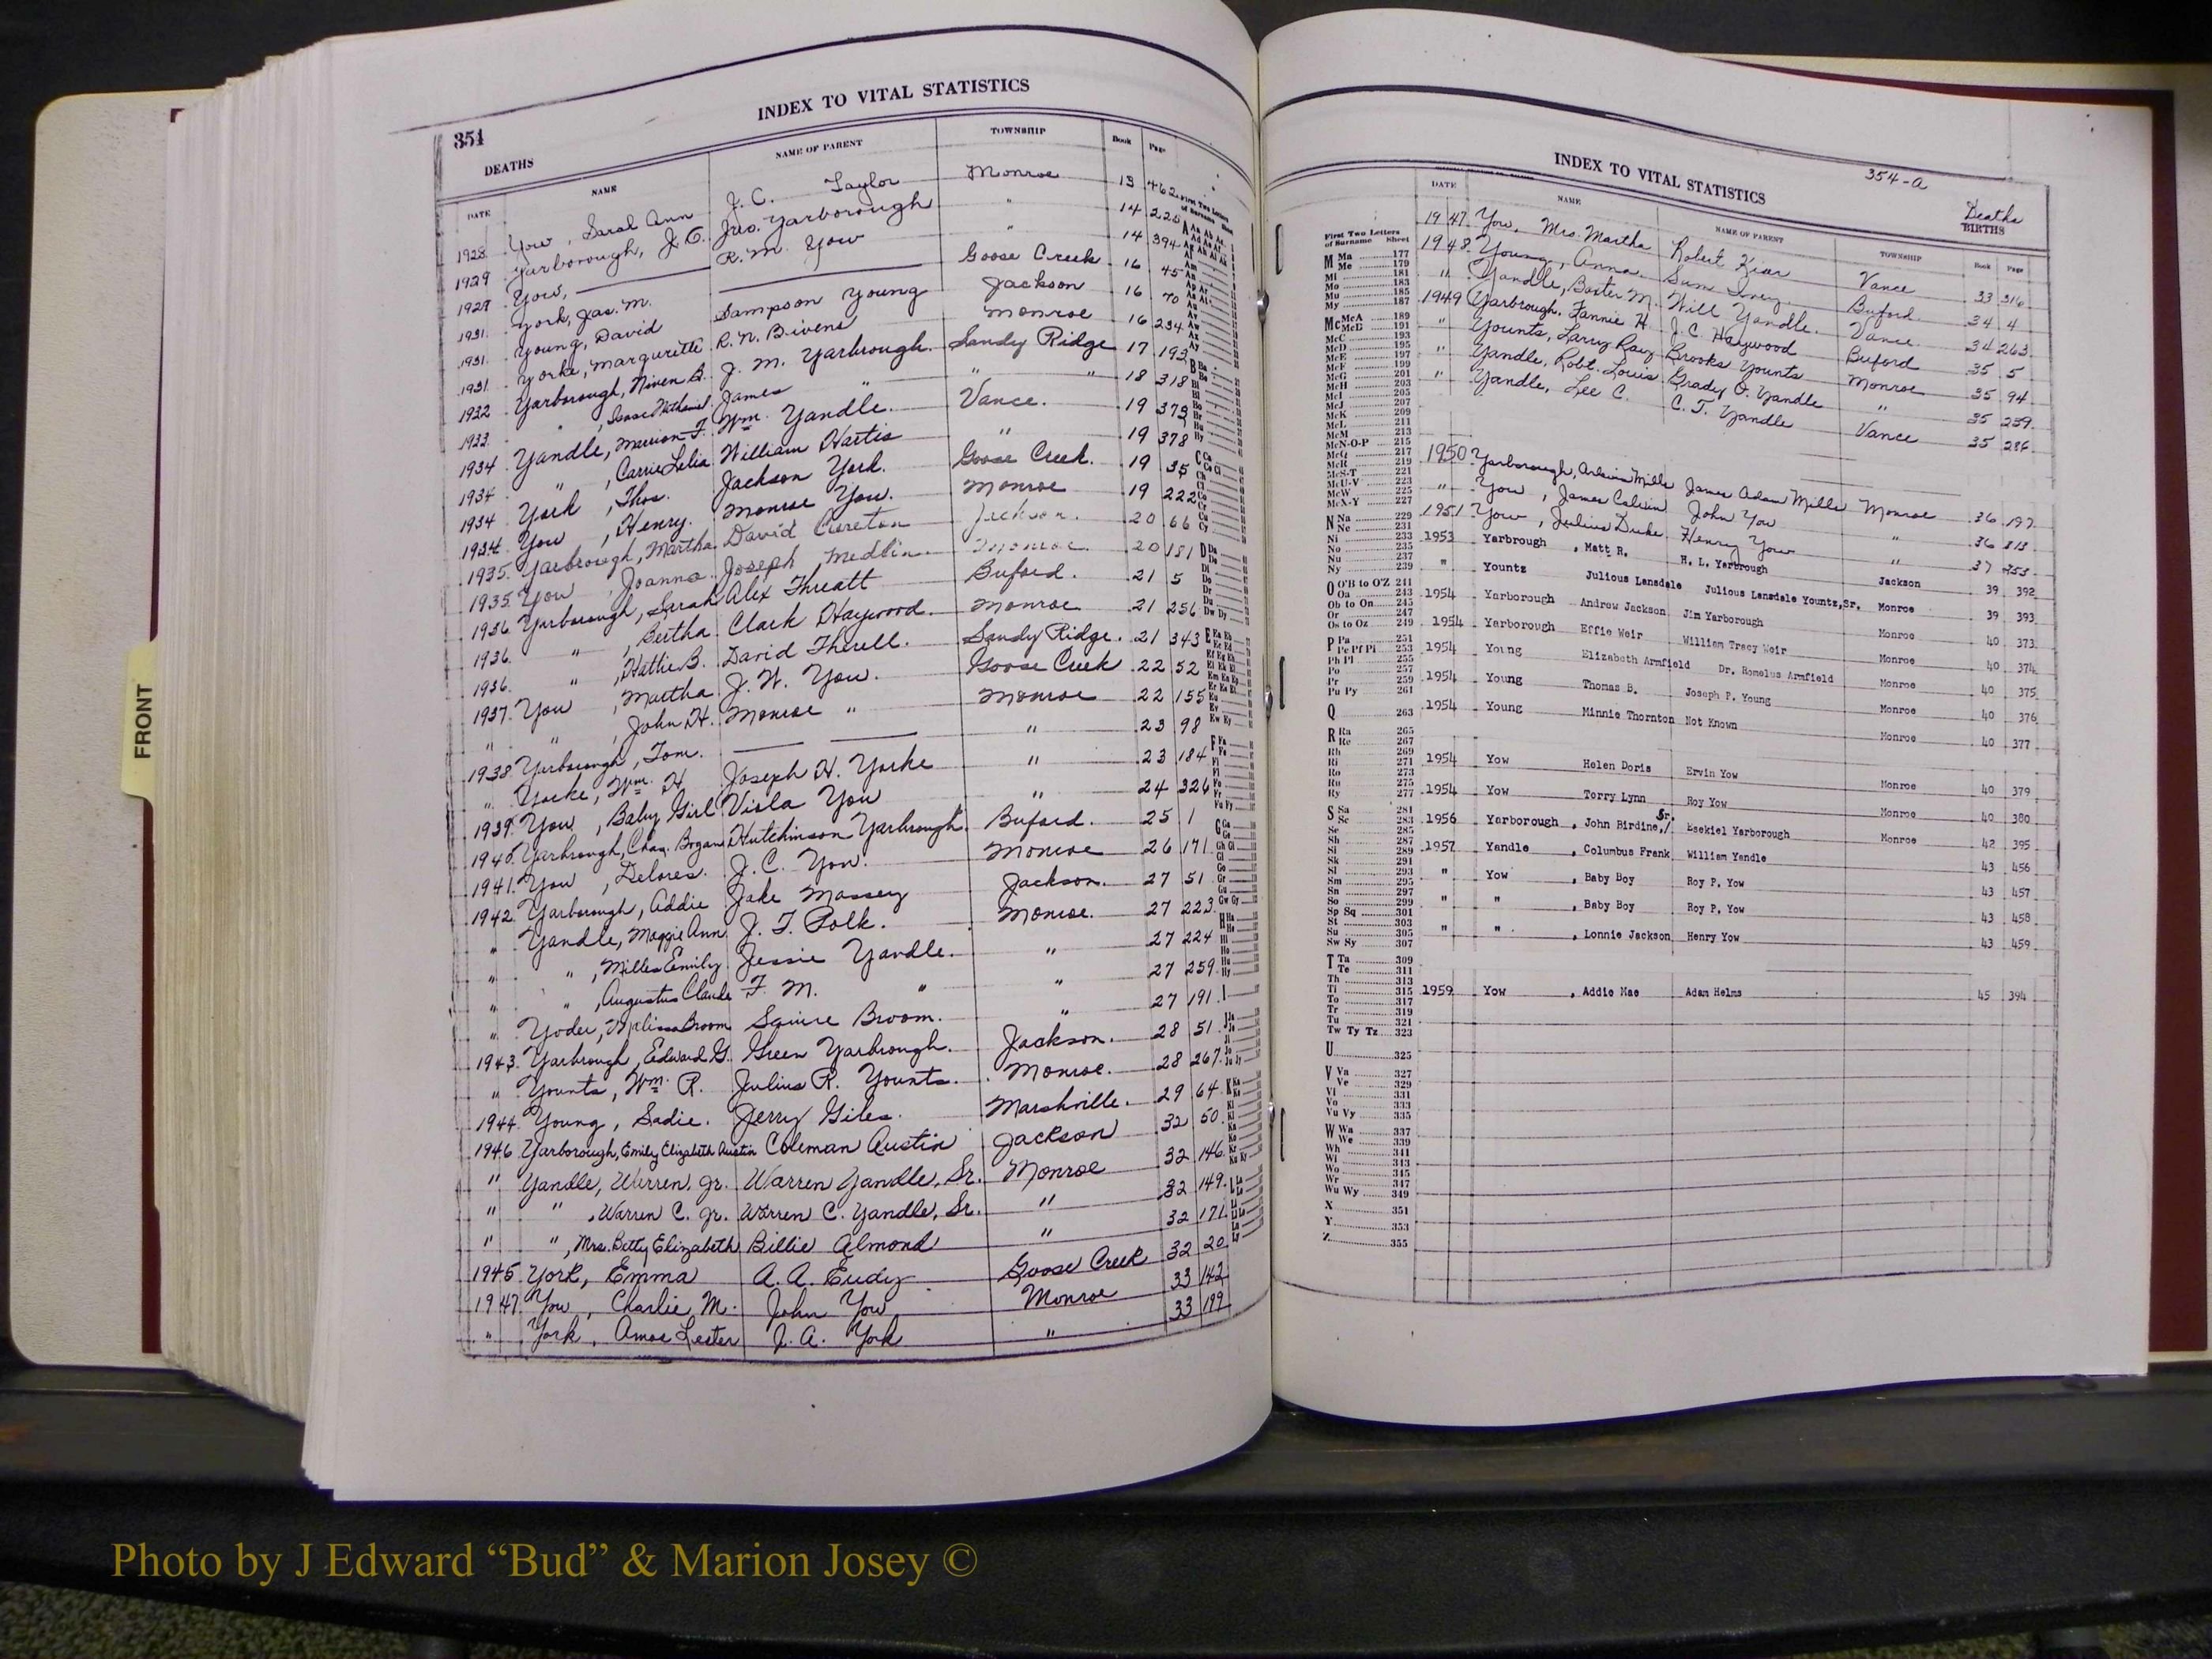 FRONT
354
INDEX TO VITAL STATISTICS
DEATHS
DATE NAME NAME OF PARENT TOWNSHIP Book Page
1928 Yow, Sarah Ann J. C. Taylor Monroe 13 462
1929 Yarborough, J. C. Jno. Yarborough " 14 220
1929 Yow, R. M. Yow " 14 394
1931 York, Jas. M. Goose Creek 16 45
1931 Young, David Sampson Young Jackson 16 70
1931 Yorke, Margurette R. N. Bivens Monroe 16 234
1932 Yarborough, Niven B. J. M. Yarbrough. Sandy Ridge 17 193
1933 " , Isaac Nathaniel James " " " 18 318
1934 Yandle, Marrion F. Wm. Yandle. Vance. 19 373
1934 " , Carrie Lelia William Hartis " 19 378
1934 York , Thos. Jackson York. Goose Creek. 19 35
1934 Yow , Henry. Monroe Yow. Monroe 19 222
1935. Yarborough, Martha David Cureton Jackson. 20 66
1935. Yow , Joanna Joseph Medlin. Monroe 20 181
1936 Yarborough, Sarah Alex Threatt Buford. 21 5
1936. " , Bertha. Clark Haywood. Monroe 21 256
1936. " , Hattie B. David Therell. Sandy Ridge. 21 343
1937. Yow , Martha J. W. Yow. Goose Creek 22 52
" " , John H. Monroe " Monroe 22 155
1938. Yarborough, Tom. " 23 98
" Yorke, Wm. H. Joseph H. Yorke " 23 184
1939. Yow , Baby Girl Viola Yow " 24 326
1940. Yarbrough, Chas. Bogan Hutchinson Yarbrough. Buford. 25 1
1941. Yow , Delores. J. C. Yow. Monroe 26 171
1942. Yarborough, Addie Jake Massey Jackson. 27 51
" Yandle, Maggie Ann J. T. Polk. Monroe. 27 223
" " , Milles Emily Jessie Yandle. " 27 224
" " , Augustus Claude F. M. " " 27 259
" Yoder, Broom Squire Broom. " 27 191
1943. Yarbrough, Edward G. Green Yarbrough. Jackson. 28 51
" Younts, Wm. R. Julius R. Younts. Monroe. 28 267
1944. Young, Sadie. Jerry Giles. Marshville. 29 64
1946 Yarborough, Emily Elizabeth Austin Coleman Austin Jackson 32 50
" Yandle, Warren, Jr. Warren Yandle, Sr. Monroe 32 146
" " , Warren C. Jr. Warren C. Yandle, Sr. " 32 149
" " , Mrs. Betty Elizabeth Billie Almond " 32 171
1945 York, Emma A. A. Eudy Goose Creek 32 20
1947. Yow, Charlie M. John Yow Monroe 33 142
" York, Amos Lester J. A. York " 33 199
INDEX TO VITAL STATISTICS
354-a
Deaths
BIRTHS
DATE NAME NAME OF PARENT TOWNSHIP Book Page
1947 Yow, Mrs. Martha Robert Kiar Vance 33 316
1948 Young, Anna. Sum Ivey. Buford. 34 4
" Yandle, Baxter M. Will Yandle. Vance. 34 263
1949 Yarbrough, Fannie H. J. C. Haywood Buford 35 5
" Younts, Larry Ray Brooks Younts Monroe 35 94
" Yandle, Robt. Louis Grady O. Yandle " 35 239
" Yandle, Lee C. C. T. Yandle Vance 35 286
1950 Yarborough, Mills James Adam Mills Monroe 36 197
" Yow , James Calvin John Yow " 36 313
1951 Yow , Julius Duke Henry Yow " 37 253
1953 Yarbrough , Matt R. H. L. Yarbrough Jackson 39 392
" Yountz Julious Lansdale Julious Lansdale Yountz, Sr. Monroe 39 393
1954 Yarborough Andrew Jackson Jim Yarborough Monroe 40 373
1954 Yarborough Effie Weir William Tracy Weir Monroe 40 374
1954 Young Elizabeth Armfield Dr. Romelus Armfield Monroe 40 375
1954 Young Thomas B. Joseph P. Young Monroe 40 376
1954 Young Minnie Thornton Not Known Monroe 40 377
1954 Yow Helen Doris Ervin Yow Monroe 40 379
1954 Yow Terry Lynn Roy Yow Monroe 40 380
1956 Yarborough , John Birdine, Sr. Esekiel Yarborough Monroe 42 395
1957 Yandle , Columbus Frank William Yandle 43 456
" Yow , Baby Boy Roy P. Yow 43 457
" " , Baby Boy Roy P. Yow 43 458
" " , Lonnie Jackson Henry Yow 43 459
1959 Yow , Addie Mae Adam Helms 45 394
First Two Letters
of Surname Sheet
M Ma 177
Me 179
Mi 181
Mo 183
Mu 185
My 187
Mc McA 189
McB 191
McC 193
McD 195
McE 197
McF 199
McG 201
McH 203
McI 205
McJ 207
McK 209
McL 211
McM 213
McN-O-P 215
McQ 217
McR 219
McS-T 221
McU-V 223
McW 225
McX-Y 227
N Na 229
Ne 231
Ni 233
No 235
Nu 237
Ny 239
O O'B to O'Z 241
Oa 243
Ob to On 245
Or 247
Os to Oz 249
P Pa 251
Pe Pf Pi 253
Ph Pl 255
Po 257
Pr 259
Pu Py 261
Q 263
R Ra 265
Re 267
Rh 269
Ri 271
Ro 273
Ru 275
Ry 277
S Sa 281
Sc 283
Se 285
Sh 287
Si 289
Sk 291
Sl 293
Sm 295
Sn 297
So 299
Sp Sq 301
St 303
Su 305
Sw Sy 307
T Ta 309
Te 311
Th 313
Ti 315
To 317
Tr 319
Tu 321
Tw Ty Tz 323
U 325
V Va 327
Ve 329
Vi 331
Vo 333
Vu Vy 335
W Wa 337
We 339
Wh 341
Wi 343
Wo 345
Wr 347
Wu Wy 349
X 351
Y 353
Z 355
Photo by J Edward “Bud” & Marion Josey ©